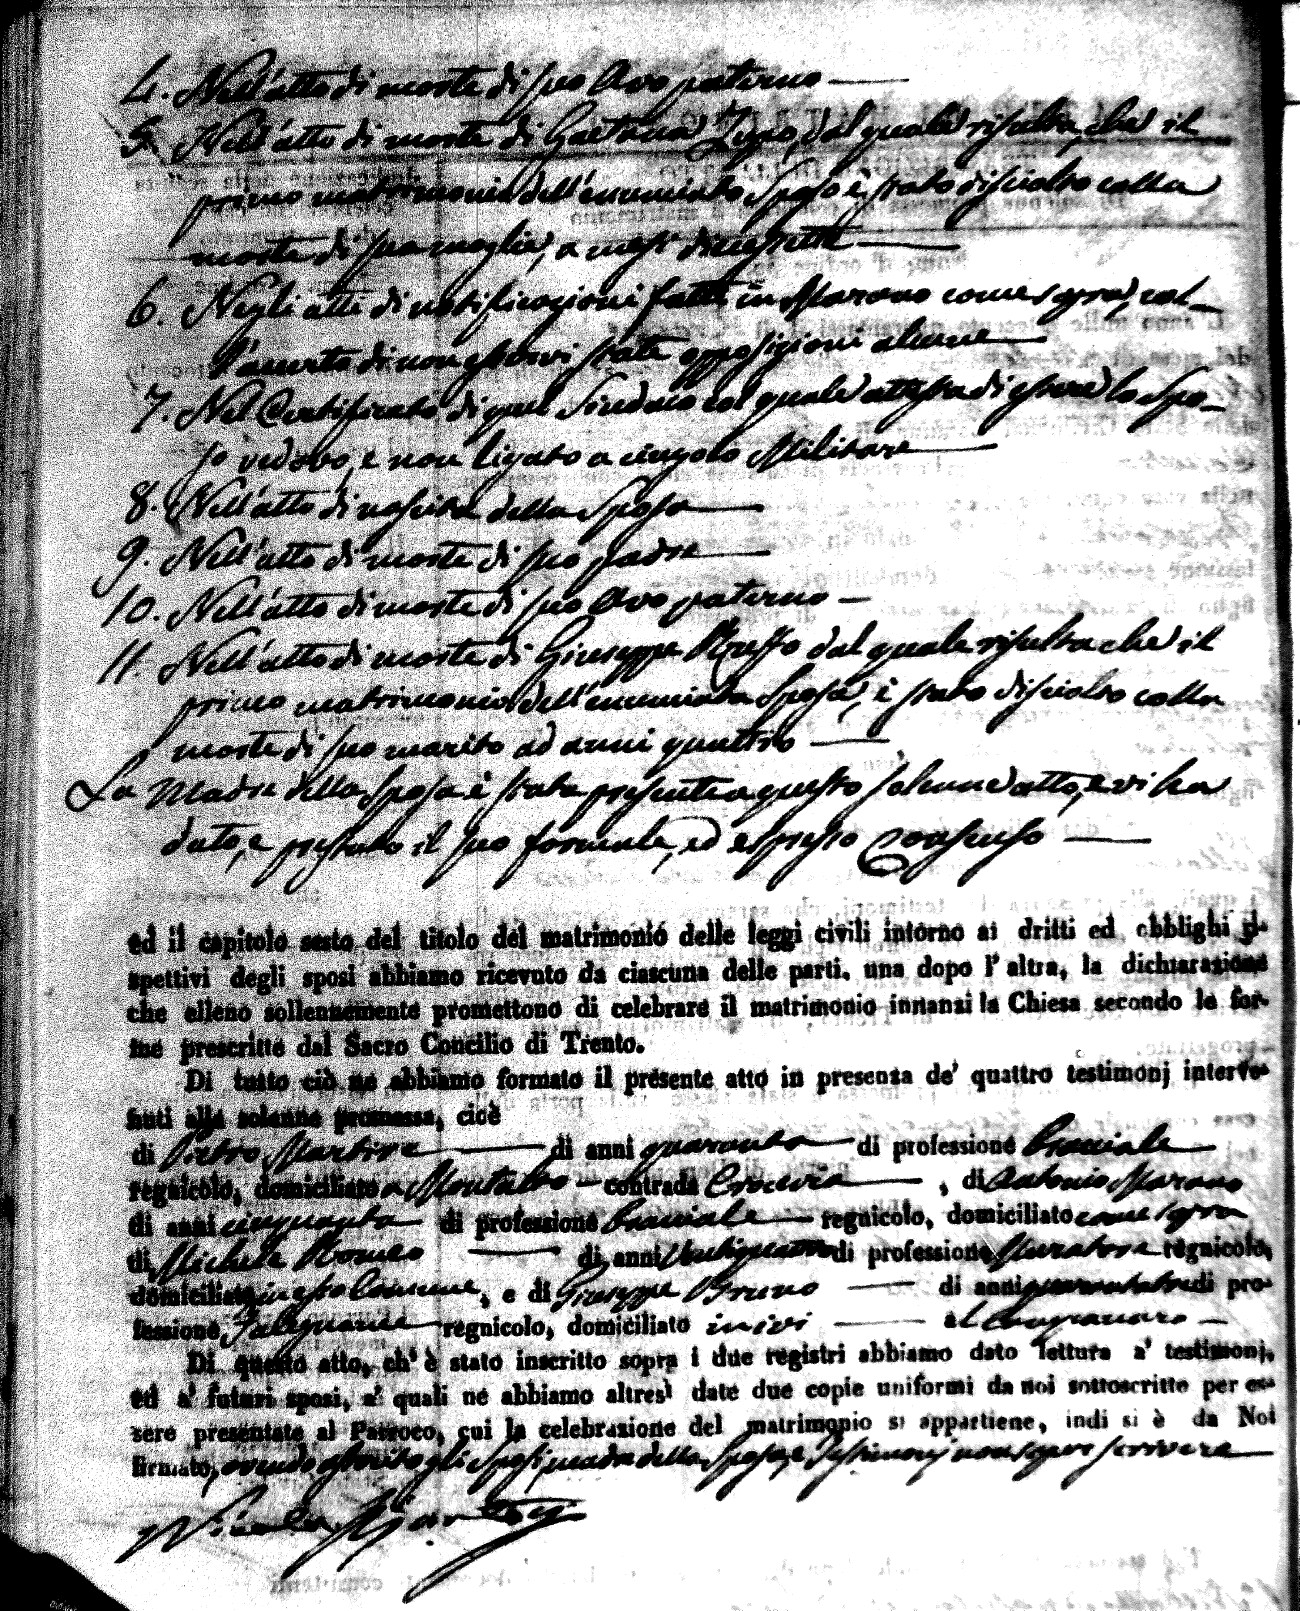 4. Nell'atto di morte di suo Avo paterno
5. Nell'atto di morte di Gaetana Zupo, dal quale risulta, che il
primo matrimonio dell'enunciato Sposo è stato disciolto colla
morte di sua moglie, a mesi diciassette
6. Negli atti di notificazioni fatti in Marano come sopra, col-
l'assunto di non esservi state opposizioni alcune
7. Nel Certificato di quel Sindaco col quale attesta di essere lo Spo-
so vedovo, e non ligato a cingolo Militare
8. Nell'atto di nascita della Sposa
9. Nell'atto di morte di suo padre
10. Nell'atto di morte di suo Avo paterno
11. Nell'atto di morte di Giuseppe dal quale risulta che il
primo matrimonio dell'enunciata Sposa, è stato disciolto colla
morte di suo marito ad anni quattro
La Madre della Sposa è stata presente a questo solenne atto, e vi ha
dato, e prestato il suo formale, ed espresso Consenso
ed il capitolo sesto del titolo del matrimonio delle leggi civili intorno ai dritti ed obblighi ri-
spettivi degli sposi abbiamo ricevuto da ciascuna delle parti. una dopo l'altra, la dichiarazione
che elleno sollennemente promettono di celebrare il matrimonio innanzi la Chiesa secondo le for-
me prescritte dal Sacro Concilio di Trento.
Di tutto ciò ne abbiamo formato il presente atto in presenza de' quattro testimonj interve-
nuti alla solenne promessa, cioè
di Pietro Martire di anni quaranta di professione Bracciale
regnicolo, domiciliato a Montalto contrada Crocevia, di Antonio Marano
di anni cinquanta di professione Bracciale regnicolo, domiciliato come sopra
di Michele Romeo di anni di professione Muratore regnicolo,
domiciliato in esso Comune, e di Giuseppe Bruno di anni quarantatre di pro-
fessione Falegname regnicolo, domiciliato ivi
Di questo atto, ch'è stato inscritto sopra i due registri abbiamo dato lettura a' testimonj,
ed a' futuri sposi, a' quali ne abbiamo altresì date due copie uniformi da noi sottoscritte per es-
sere presentate al Parroco, cui la celebrazione del matrimonio si appartiene, indi si è da Noi
firmato, avendo asserito gli Sposi, madre della Sposa, e Testimonj non saper scrivere
Nicola